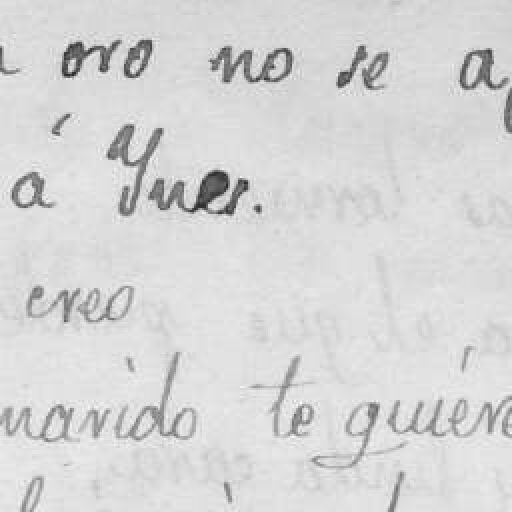 oro no se
á Ynes.
creo
marido te quiére